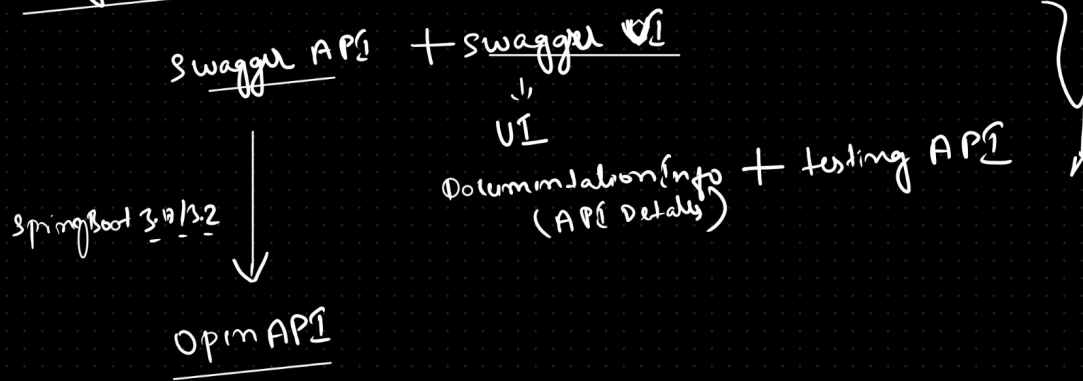 Swagger API + Swagger UI
UI
Documentation Info + testing API
(API Details)
SpringBoot 3.2
Open API